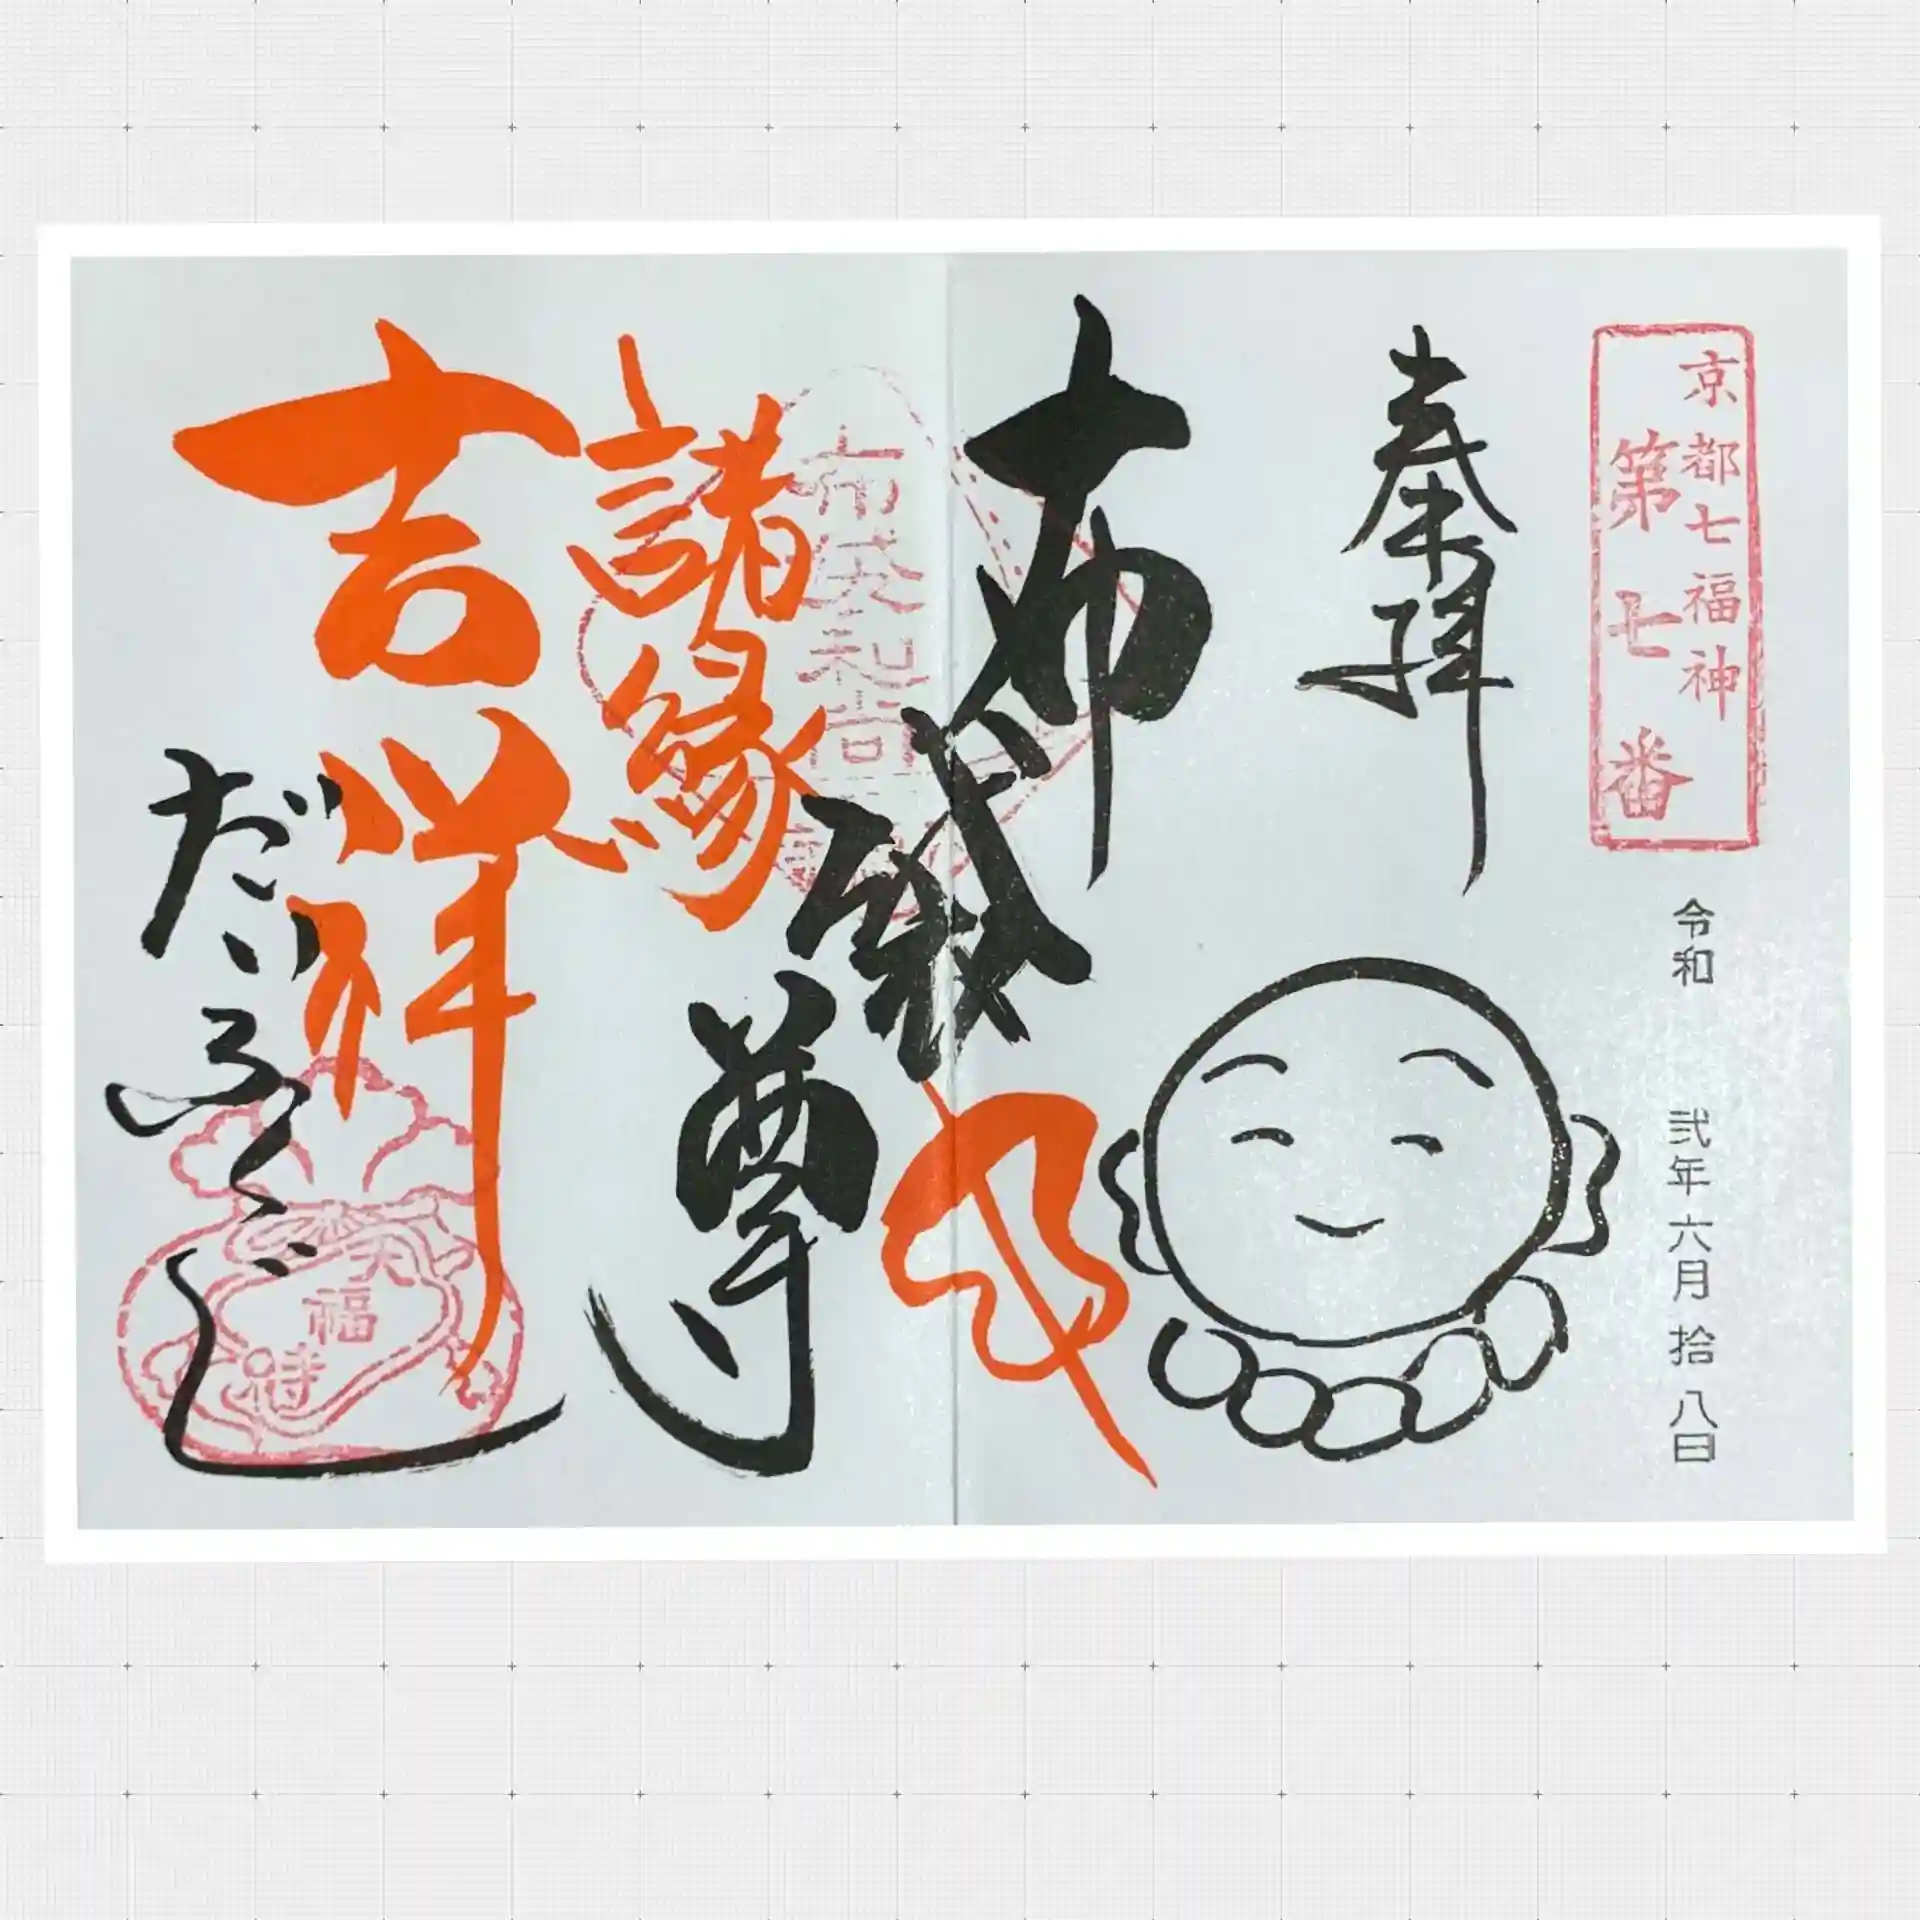 京都七福神
第七番
令和 弐年六月拾八日
奉拝
布袋尊
諸縁
吉祥
だいふく
福